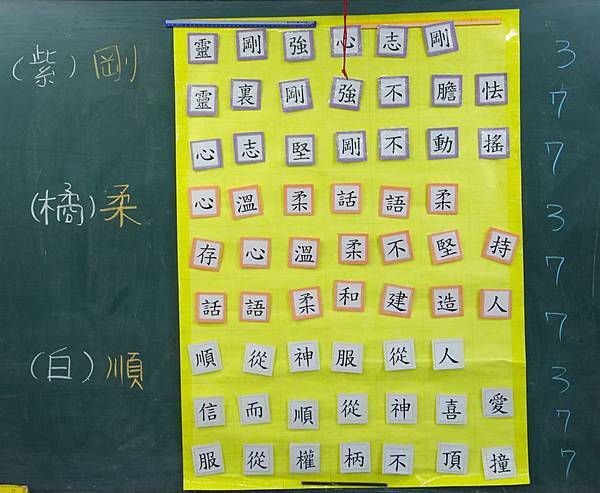 靈剛強心志剛 3
(紫)剛
靈裏剛強不膽怯 7
心志堅剛不動搖 7
(橘)柔
心溫柔話語柔 3
存心溫柔不堅持 7
話語柔和建造人 7
(白)順
順從神服從人 3
信而順從神喜愛 7
服從權柄不頂撞 7